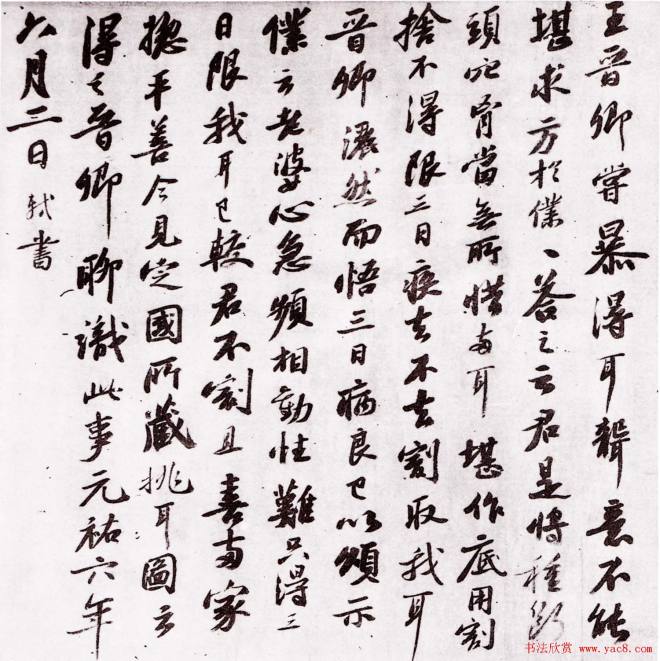 王晉卿嘗暴得耳聾意不能
堪求方於僕僕答之云君是將種斷
頭穴胷當無所惜兩耳堪作底用割
捨不得限三日疾去不去割取我耳
晉卿灑然而悟三日病良已以頌示
僕云老婆心急頻相勸性難只得三
日限我耳已較君不割且喜兩家
揔平善今見定國所藏挑耳圖云
得之晉卿聊識此事元祐六年
六月二日軾書
书法欣赏 www.yac8.com